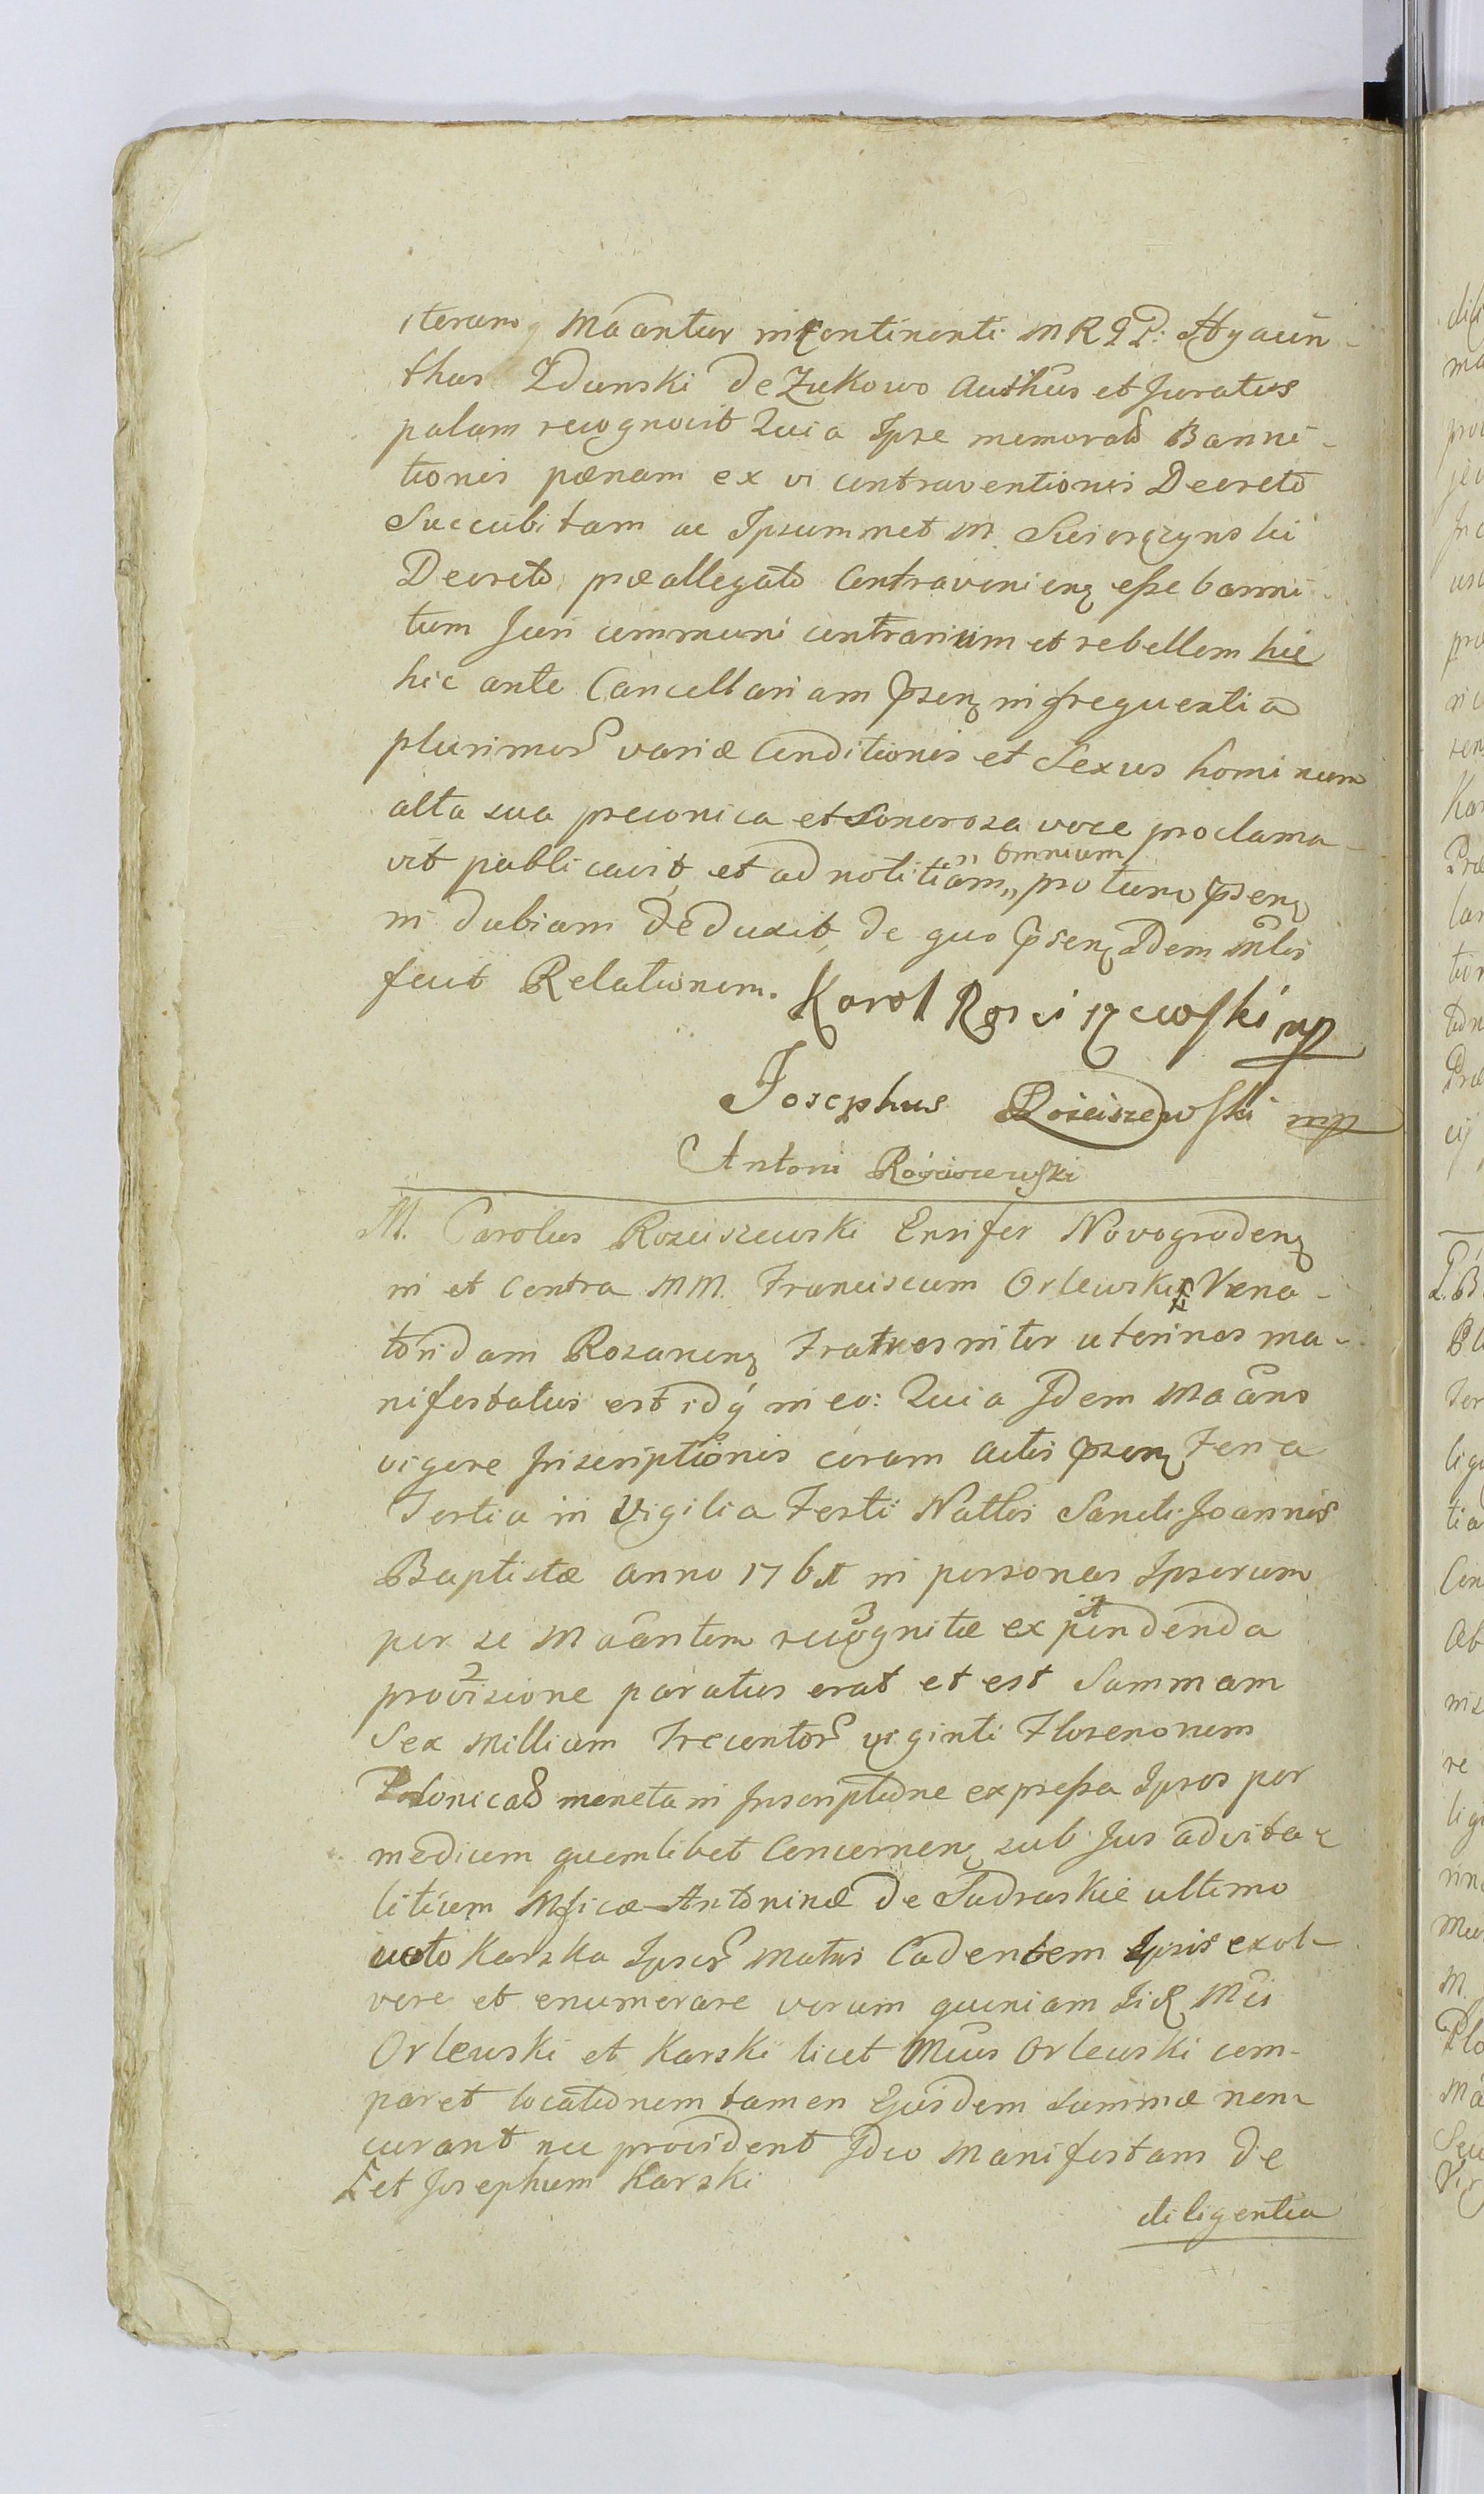 iterumq Maantur incontinenti MRGP: Hyacin-
thus Zdunski de Zukowo Authus et Juratus
palam recognovit Quia Ipse memorato Banni-
tionis pœnam ex vi contraventionis Decreto
Succubitam ac Ipsummet M.
Decreto præallegato Contravenienq eſse banni-
tum Juri communi contrarium et rebellem hic
hic ante Cancellariam Psenq in frequentia
plurimor variæ Conditionis et Sexus hominum
alta sua preconica et Sonorosa voce proclama-
vit publicavit, et ad notitiam „ omnium „ pro tunc Psenq
in dubiam deduxit, de quo Psenq Idem Mlis
fecit Relationem. Karol Rosciszewski mp
Josephus Rościszewski mp
Antoni Rościszewski
M. Carolus Rosciszewski Ensifer Novogrodenq
in et contra MM. Franciscum Orlewski Vena-
toridam Rozanenq Fratres inter uterinos ma-
nifestatus est idq in eo: Quia Idem Maans
vigore Inscriptionis coram actis Psenq Feria
Tertia in Vigilia Festi Natlis Sancti Joannis
Baptistæ anno 176 in personas Ipsorum
per se Maantem recognitæ ex pendenda
provisione paratus erat et est Summam
Sex Millium Trecentor viginti Florenorum
Polonical moneta in Inscriptione expreſsa Ipsos per
medium quemlibet Concernenq sub Jus advita-
litium Mficæ Antoninæ de Sudraskie ultimo
voto Karska Ipsor Matris Cadentem Ipsis exol-
vere et enumerare verum quoniam Mci
Orlewski et Karski licet Mcus Orlewski com-
paret locationem tamen Ejusdem Summæ non
curant nec provident Ideo Manifestans de
et Josephum Karski
diligentia